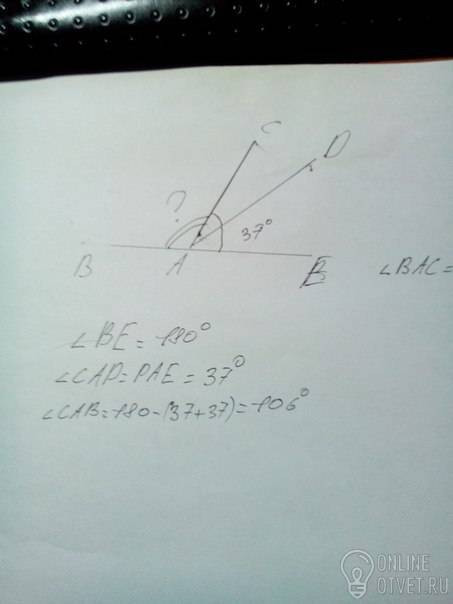 C
D
?
37°
B
A
E
∠BAC=
∠BE=180°
∠CAD=DAE=37°
∠CAB=180-(37+37)=106°
ONLINE
OTVET.RU